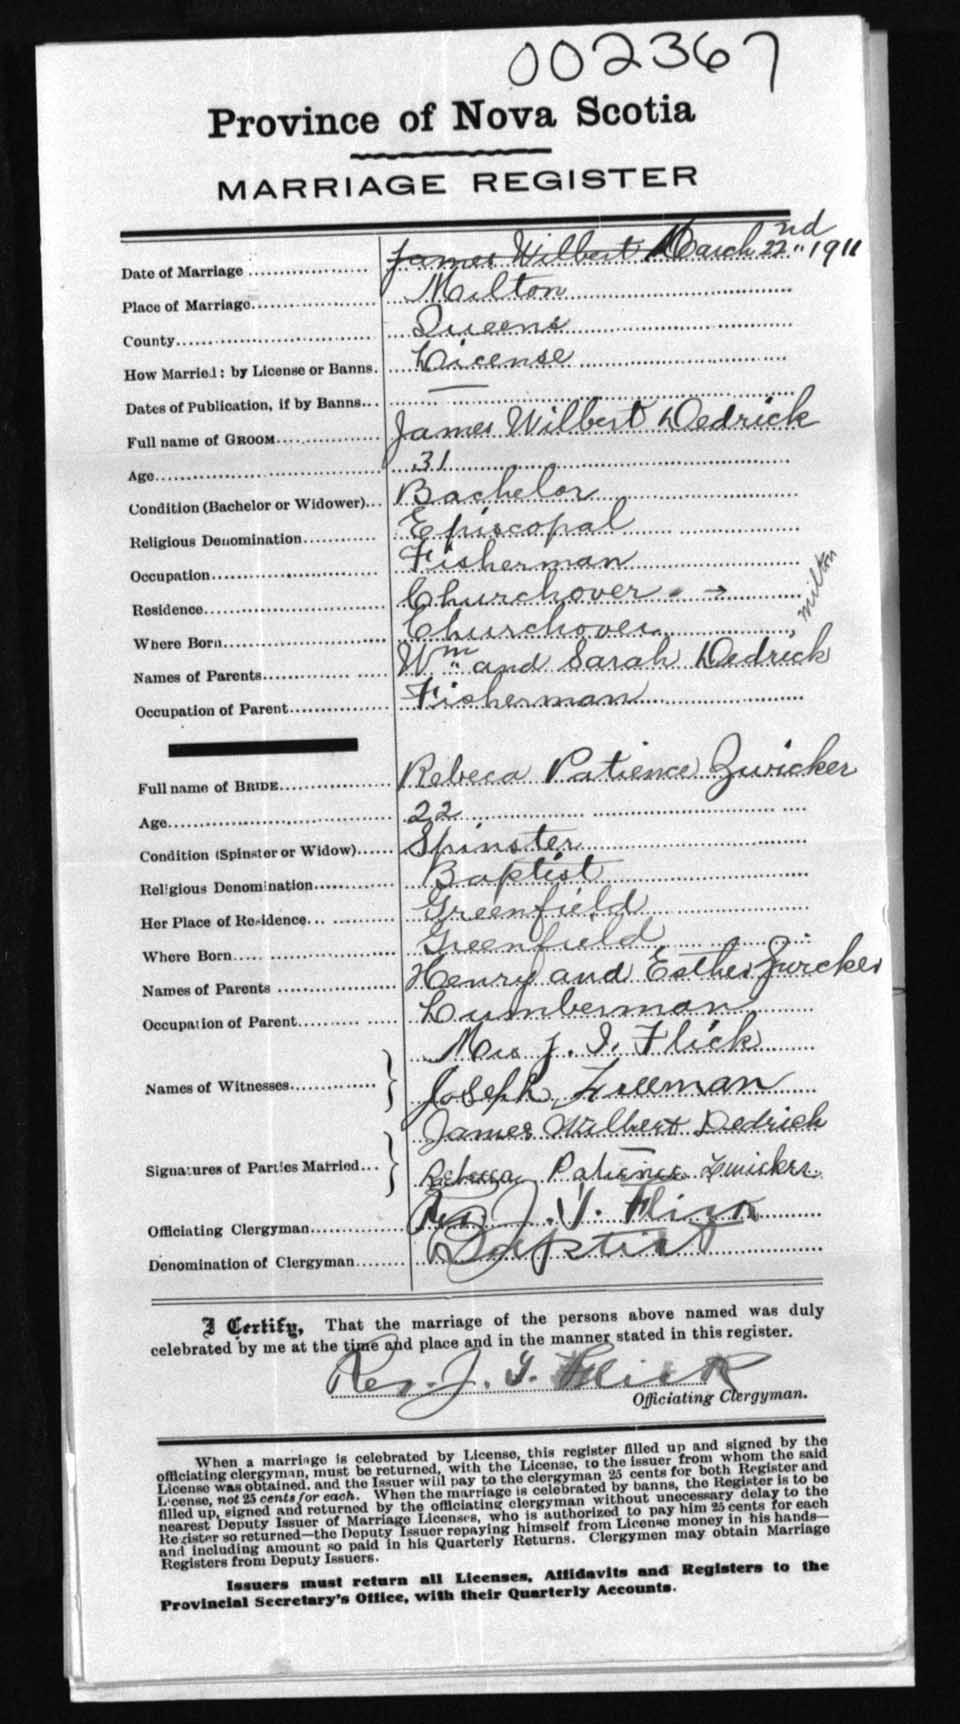 002367
Province of Nova Scotia
MARRIAGE REGISTER
Date of Marriage James Wilbert March 22nd " 1911
Place of Marriage Milton
County Queens
How Married: by License or Banns. License
Dates of Publication, if by Banns... —
Full name of GROOM James Wilbert Dedrick
Age 31
Condition (Bachelor or Widower)... Bachelor
Religious Denomination Episcopal
Occupation Fisherman
Residence Churchover → Milton
Where Born Churchover
Names of Parents Wm and Sarah Dedrick
Occupation of Parent Fisherman
Full name of BRIDE Rebeca Patience Zwicker
Age 22
Condition (Spinster or Widow) Spinster
Religious Denomination Baptist
Her Place of Residence Greenfield
Where Born Greenfield
Names of Parents Henry and Esther Zwicker
Occupation of Parent Lumberman
Mrs J. I. Flick
Names of Witnesses } Joseph Freeman
James Wilbert Dedrick
Signatures of Parties Married... } Rebecca Patience Zwicker
Officiating Clergyman Rev. J.
Denomination of Clergyman Baptist
I Certify, That the marriage of the persons above named was duly
celebrated by me at the time and place and in the manner stated in this register.
Rev. J.
Officiating Clergyman.
When a marriage is celebrated by License, this register filled up and signed by the
officiating clergyman, must be returned, with the License, to the issuer from whom the said
License was obtained, and the Issuer will pay to the clergyman 25 cents for both Register and
License, not 25 cents for each. When the marriage is celebrated by banns, the Register is to be
filled up, signed and returned by the officiating clergyman without unnecessary delay to the
nearest Deputy Issuer of Marriage Licenses, who is authorized to pay him 25 cents for each
Register so returned—the Deputy Issuer repaying himself from License money in his hands—
and including amount so paid in his Quarterly Returns. Clergymen may obtain Marriage
Registers from Deputy Issuers.
Issuers must return all Licenses, Affidavits and Registers to the
Provincial Secretary's Office, with their Quarterly Accounts.